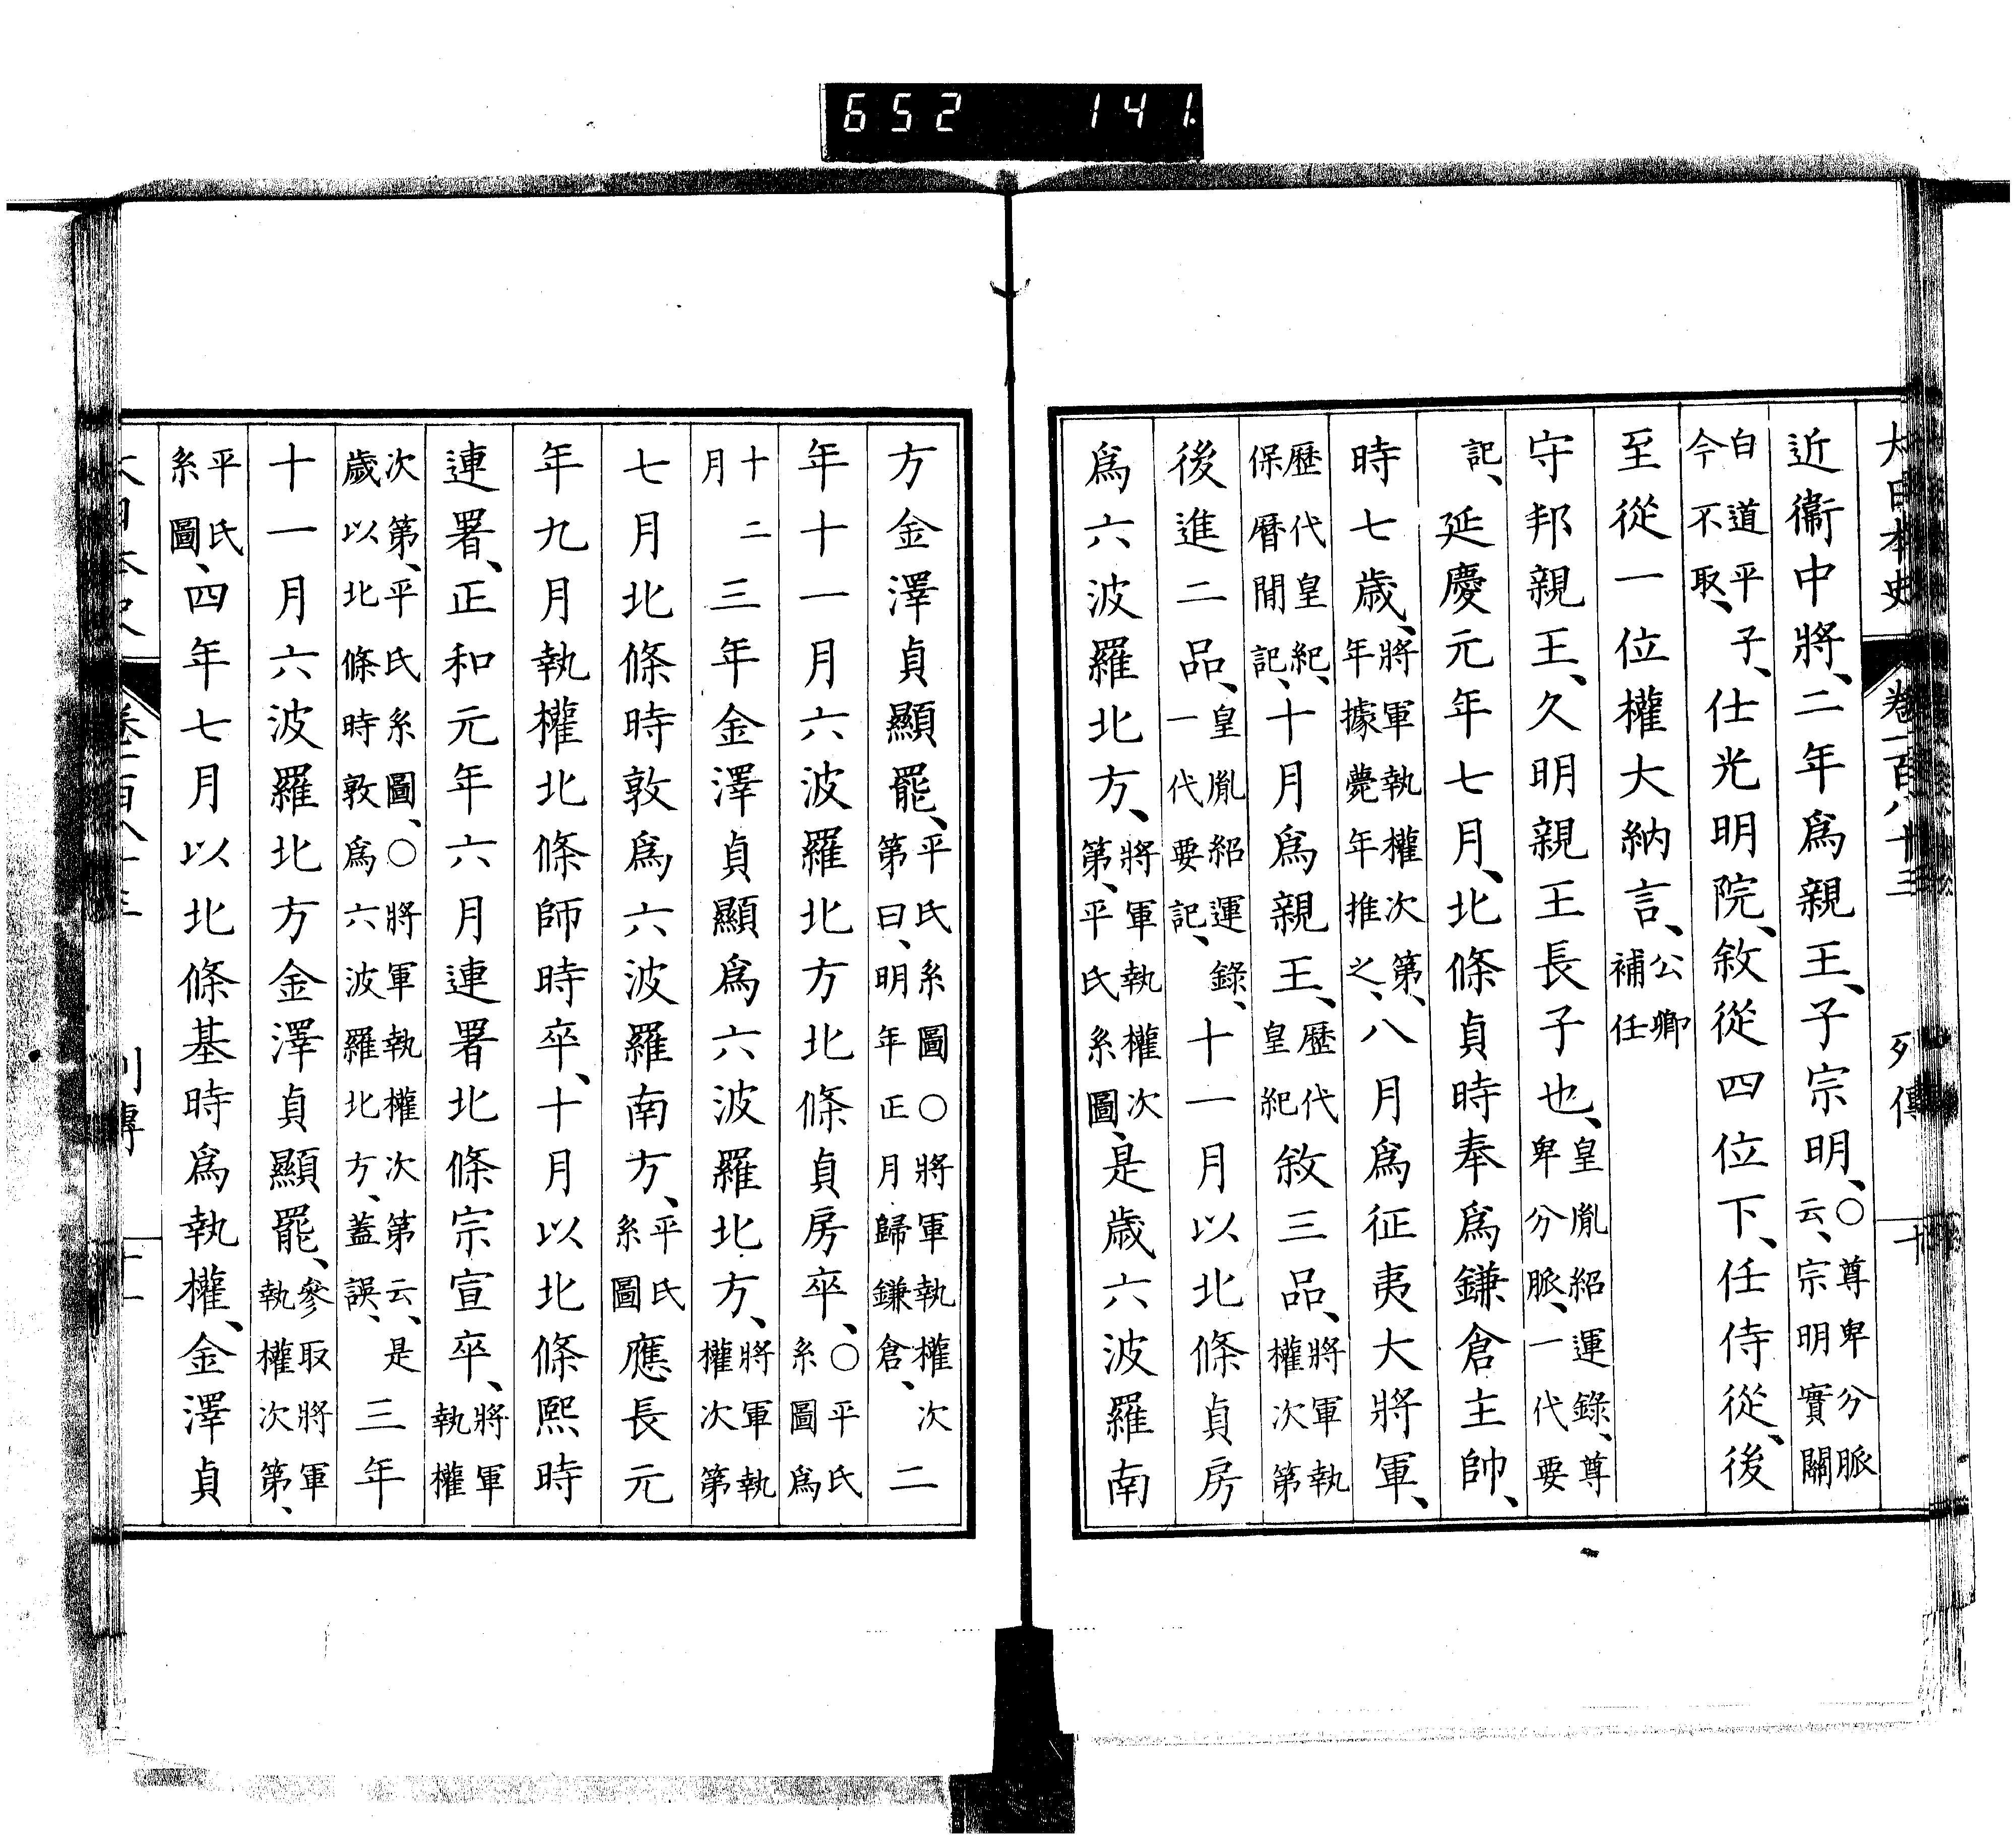 652 141
大日本史 卷一百八十三 列傳 十
近衞中將、二年爲親王、子宗明、○尊卑分脈云、宗明實關
白道平子、今不取、仕光明院、敘從四位下、任侍從、後
至從一位權大納言、公卿補任
守邦親王、久明親王長子也、皇胤紹運錄、尊卑分脈、一代要
記、延慶元年七月、北條貞時奉爲鎌倉主帥、
時七歲、將軍執權次第、年據薨年推之、八月爲征夷大將軍、
歷代皇紀、保曆閒記、十月爲親王、歷代皇紀敘三品、將軍執權次第
後進二品、皇胤紹運錄、一代要記、十一月以北條貞房
爲六波羅北方、將軍執權次第、平氏系圖、是歲六波羅南
方金澤貞顯罷、平氏系圖○將軍執權次第曰、明年正月歸鎌倉、二
年十一月六波羅北方北條貞房卒、○平氏系圖爲
十二月三年金澤貞顯爲六波羅北方、將軍執權次第
七月北條時敦爲六波羅南方、平氏系圖應長元
年九月執權北條師時卒、十月以北條熙時
連署、正和元年六月連署北條宗宣卒、將軍執權
次第、平氏系圖、○將軍執權次第云、是歲以北條時敦爲六波羅北方、蓋誤、三年
十一月六波羅北方金澤貞顯罷、參取將軍執權次第、
平氏系圖、四年七月以北條基時爲執權、金澤貞